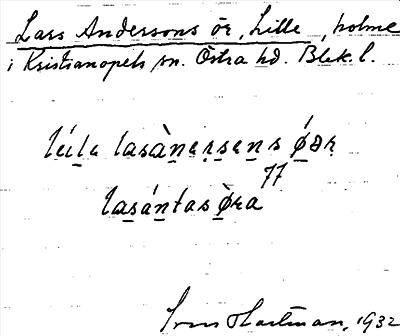 Lars Anderssons ör, Lille holme
i Kristianopels sn. Östra hd. Blek. l.
lìlə lasànəṣəns ǿər
77
lasántas ø̀ra
Hartman, 1932